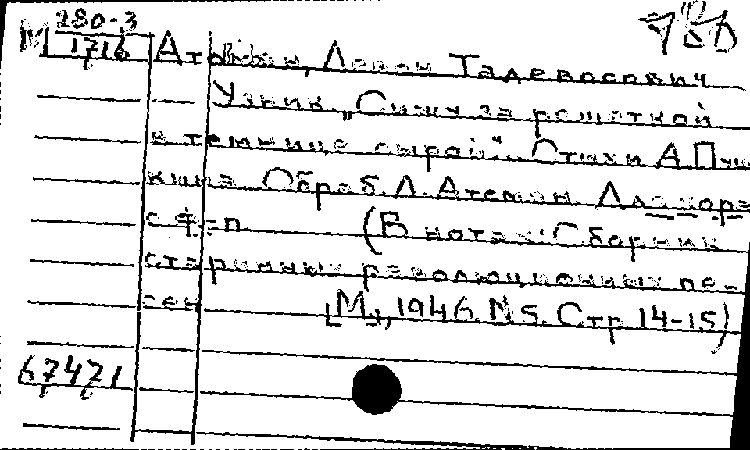 М 280-3
1716
Атовмян, Левон Тадевосович
Узник. „Сижу за решеткой
в темнице сырой"... Стихи А. Пуш
кина. Обраб. Л. Атовмян. Для хора
с ф-п. (В нотах: Сборник
старинных революционных пе-
сен [М.], 1946. № 5. Стр. 14-15)
67471